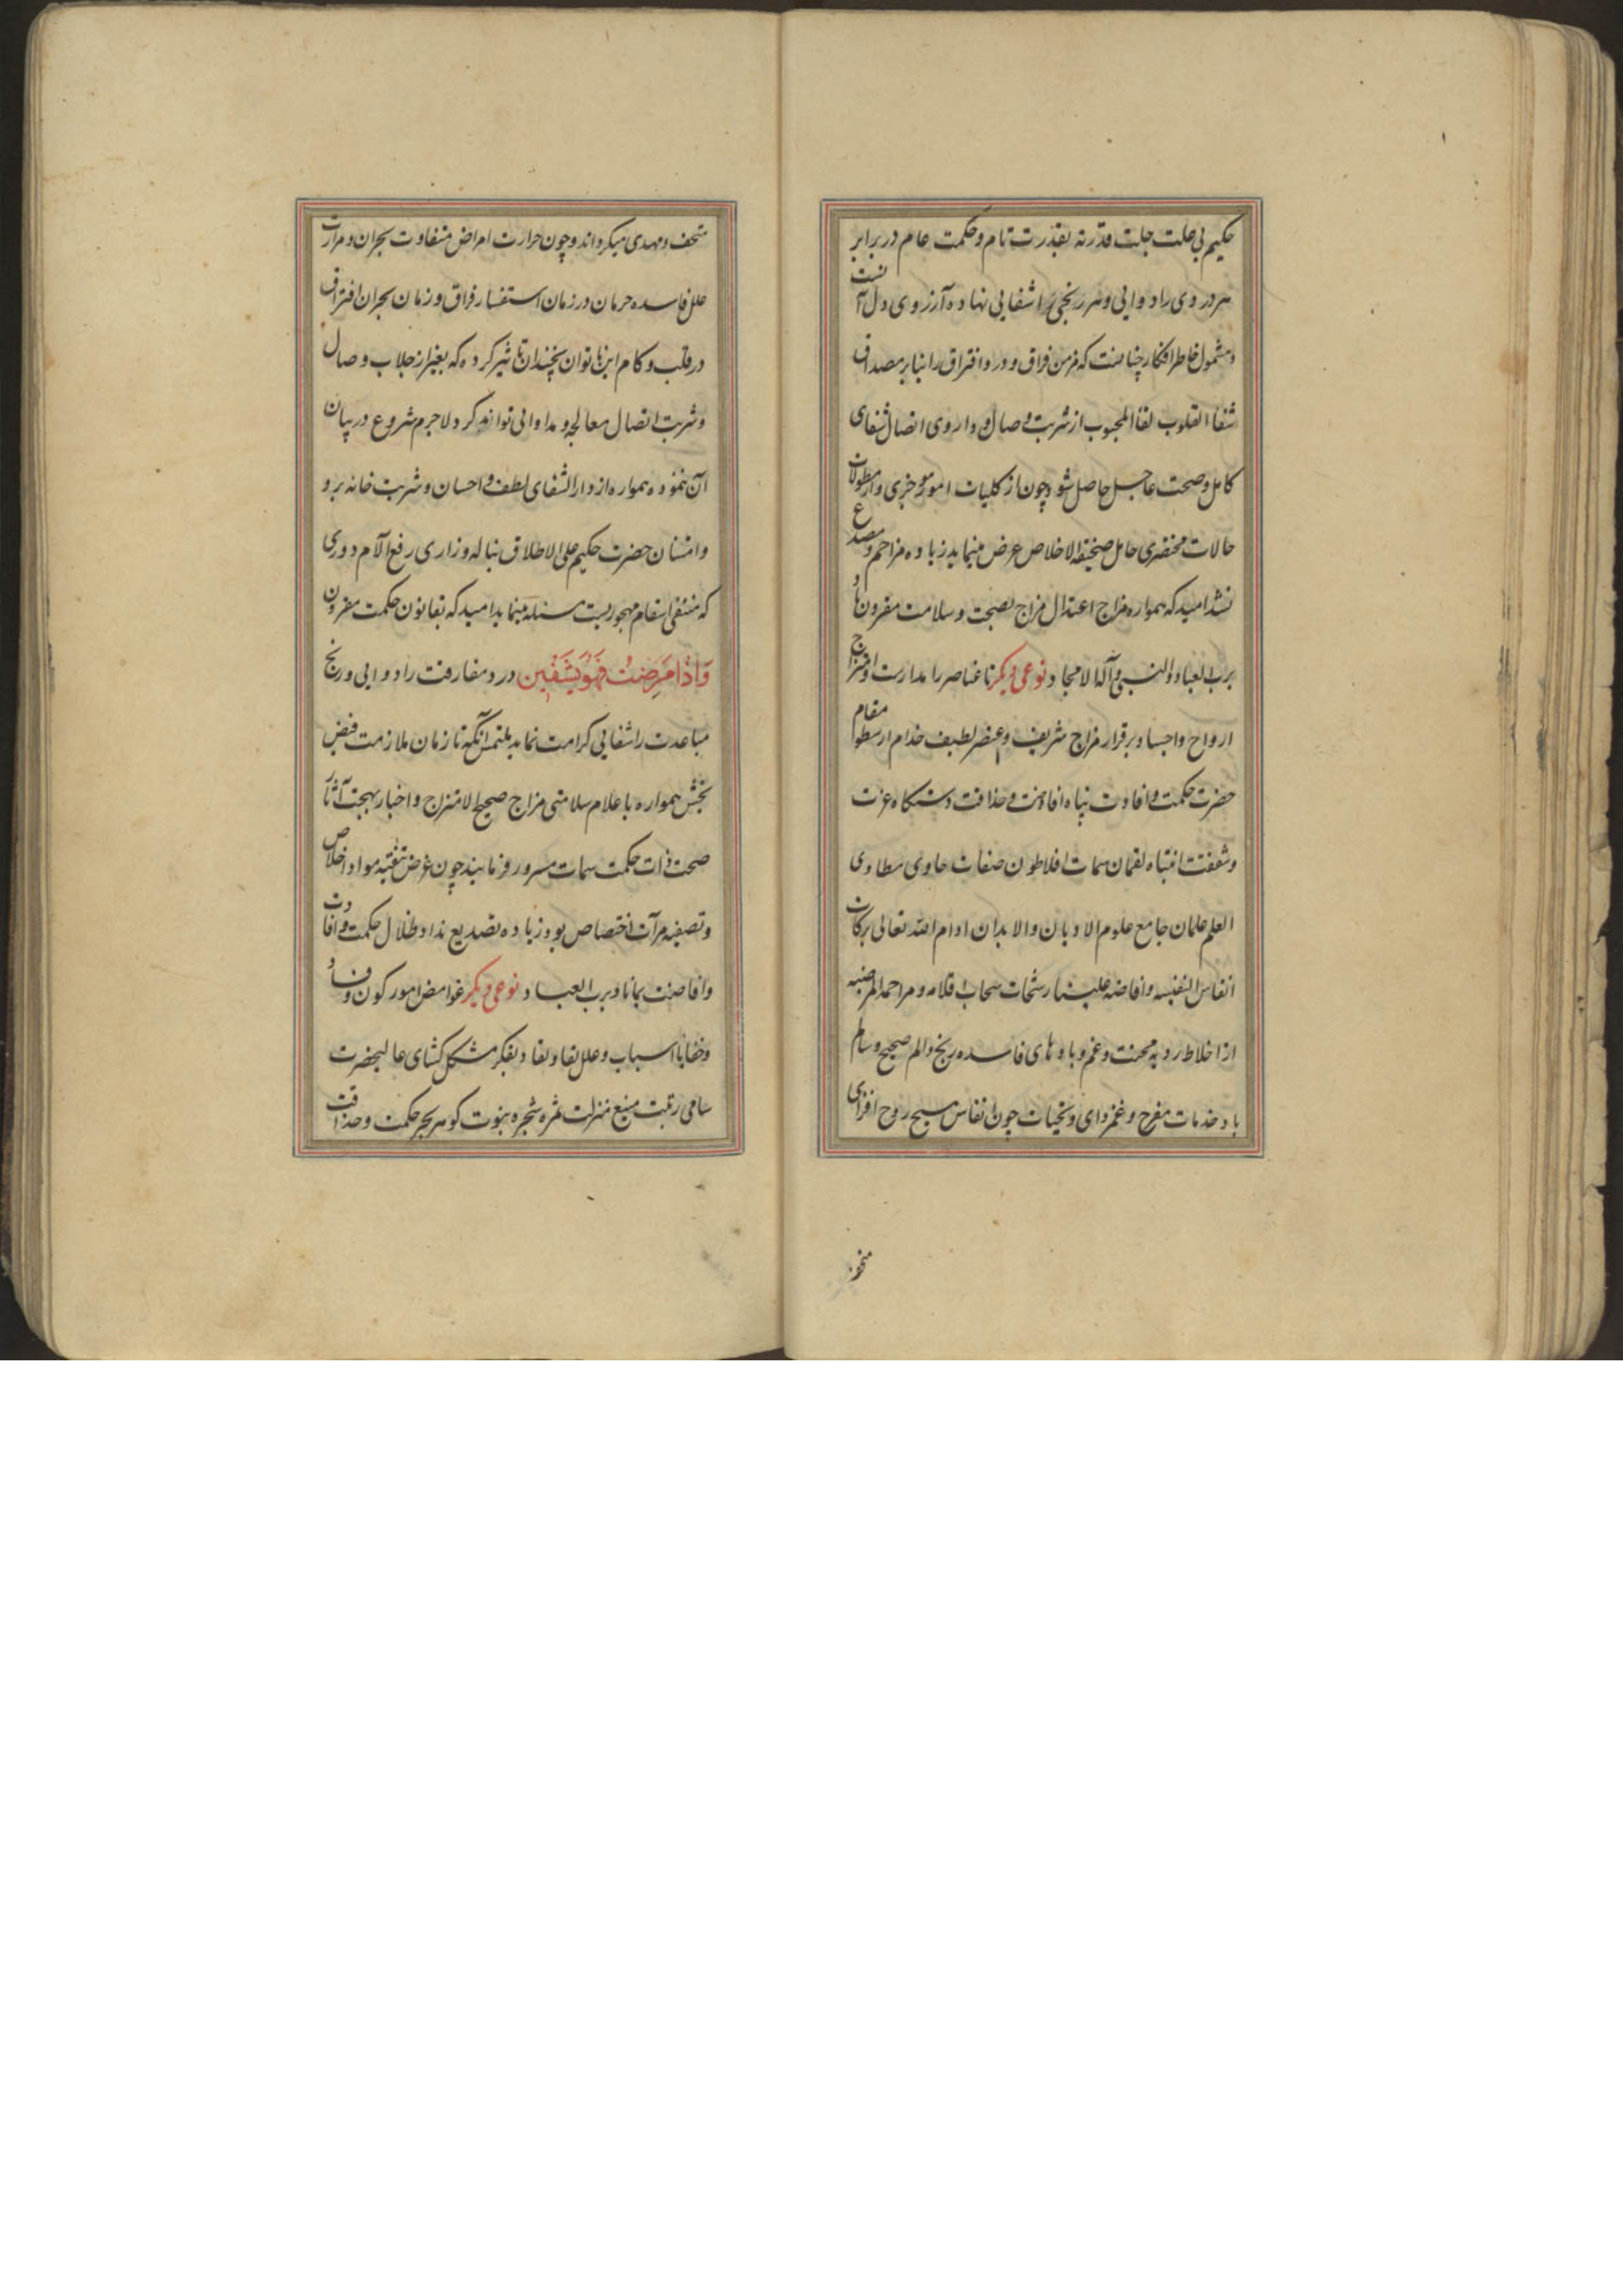 حکیم بی علت جلت قدرته بقدرت تام و حکمت عام در برابر
هر دردی را دوایی و هر رنجی را شفایی نهاده آرزوی دل آنست
و مشمول خاطر افکار چنانست که مزمن فراق و درد افتراق را بنا بر مصداق
شفا القلوب لقا المحبوب از شربت وصال و داروی اتصال شفای
کامل و صحت عاجل حاصل شود چون از کلیات امور جزی و از مطولات
حالات مختصری حامل صحیفة الاخلاص عرض مینماید زیاده مزاحم و مصدع
نشد امید که همواره مزاج اعتدال مزاج بصحت و سلامت مقرون باد
برب العباد و النبی و آله الامجاد نوعی دیگر تا عناصر را مدارست و امتزاج
ارواح و اجساد برقرار مزاج شریف و عنصر لطیف خدام ارسطو مقام
حضرت حکمت و افادت پناه افاضت و حذاقت دستگاه عزت
و شفقت انتباه لقمان سمات افلاطون صفات حاوی
العلم علمان جامع علوم الادیان و الابدان ادام الله تعالی برکات
انفاس النفیسه و افاضه علینا رشحات سحاب اقلامه و مراحمه المرضیه
از اخلاط ردیه محنت و غم و بادهای فاسده رنج و الم صحیح و سالم
باد خدمات مفرح و غمزدای و تحیات چون انفاس مسیح روح افزای
متحف
متحف و مهدی میگرداند و چون حرارت امراض متفاوت هجران و مرارت
علل فاسده حرمان در زمان استفسار فراق و زمان بحران افتراق
در قلب و کام این ناتوان نچندان تاثیر کرده که بغیر از جلاب وصال
و شربت اتصال معالجه و مداوایی تواند کرد لاجرم شروع در بیان
آن ننموده همواره از دار الشفای لطف و احسان و شربت خانه بر و
و امتنان حضرت حکیم علی الاطلاق بناله و زاری رفع آلام دوری
که اسقام مهجوریست مسئله مینماید امید که بقانون حکمت مقرون
وَاِذَا مَرِضْتُ فَهُوَ یَشْفِینِ درد مفارقت را دوایی و رنج
مباعدت را شفایی کرامت نماید ملتمس آنکه تا زمان ملازمت فیض
بخش همواره باعلام سلامتی مزاج صحیح الامتزاج و اخبار بهجت آثار
صحت ذات حکمت سمات مسرور فرمایند چون غرض تنقیه مواد اخلاص
و تصفیه مرآت اختصاص بود زیاده تصدیع نداد ظلال حکمت و افادت
و افاضت بماناد برب العباد نوعی دیگر غوامض امور کون و فساد
و خفایا اسباب و علل بقا و نفاد بفکر مشکل کشای عالیحضرت
سامی رتبت منیع منزلت ثمره شجره نبوت گوهر بحر حکمت و حذاقت